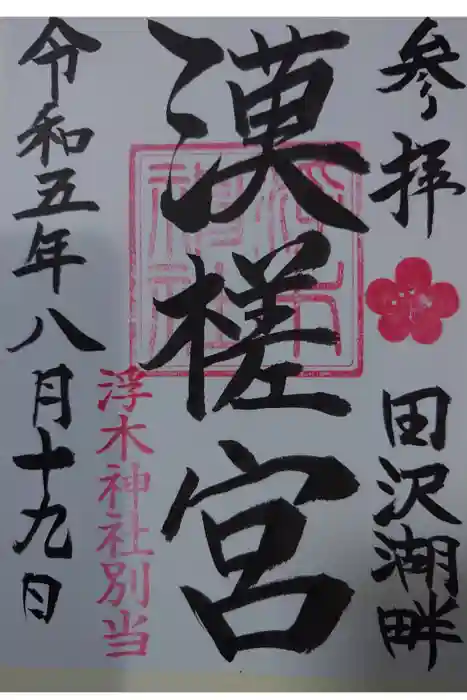 参拝 田沢湖畔
漢槎宮
浮木神社
浮木神社別当
令和五年八月十九日